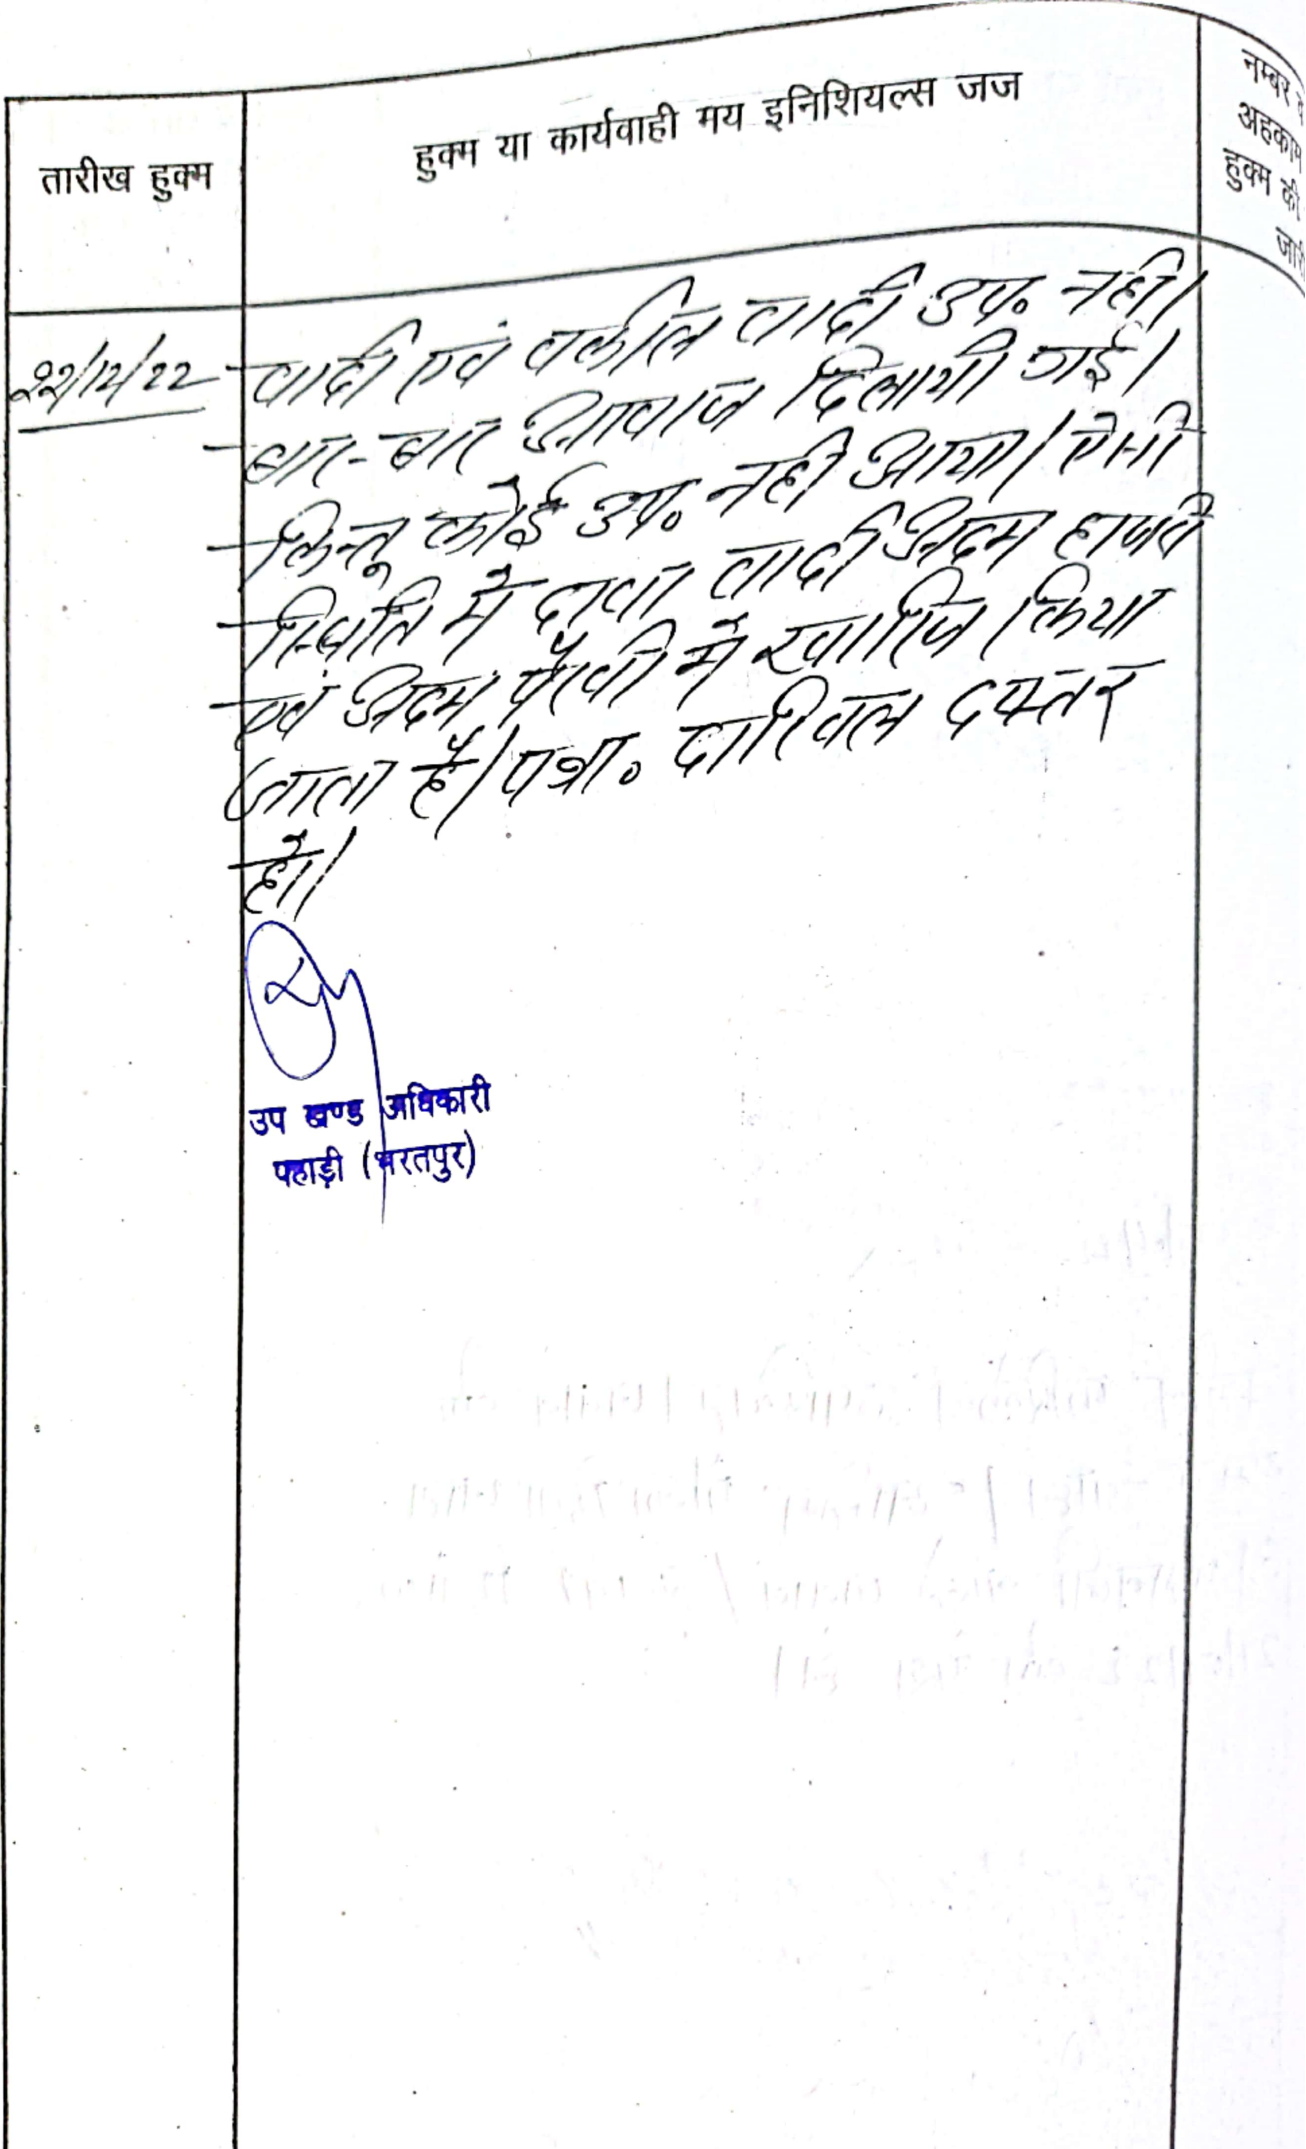 तारीख हुक्म
हुक्म या कार्यवाही मय इनिशियल्स जज
नम्बर
अहकाम
हुक्म की
22/12/22
वादी एवं वकील वादी उप. नही।
बार-बार आवाज दिलायी गई।
किन्तू कोई उप. नही आया। ऐसी
स्थिति में दावा वादी अदम हाजरी
एवं अदम पैरवी में खारिज किया
जाता है। पत्रा. दाखिल दफ्तर
हो।
उप खण्ड अधिकारी
पहाड़ी (भरतपुर)